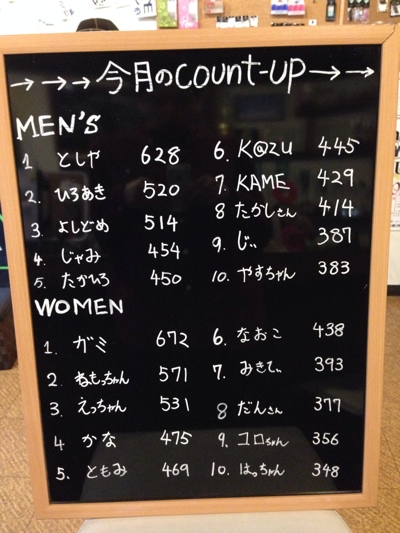 →→→今月のcount-up→→
MEN'S
1 としや 628
2. ひろあき 520
3. よしどめ 514
4. じゃみ 454
5. たかひろ 450
6. K@zu 445
7. KAME 429
8 たかしさん 414
9. じぃ 387
10. やすちゃん 383
WOMEN
1. ガミ 672
2. ねもっちゃん 571
3. えっちゃん 531
4 かな 475
5. ともみ 469
6. なおこ 438
7. みきてぃ 393
8 だんさん 377
9. コロちゃん 356
10. はっちゃん 348